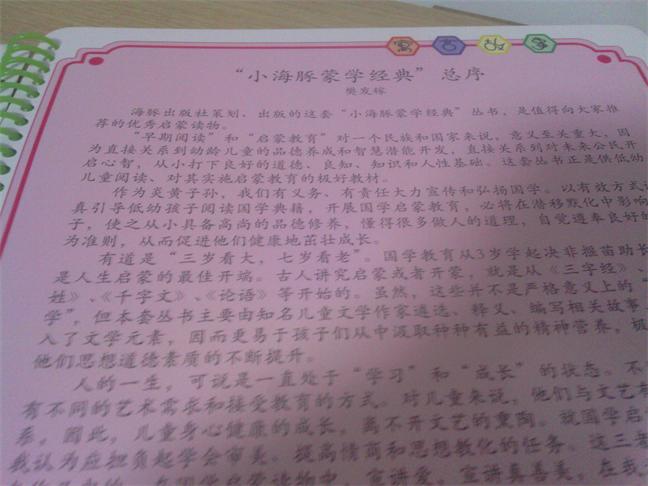 寓言故事
“小海豚蒙学经典” 总序
樊发稼
海豚出版社策划、出版的这套“小海豚蒙学经典”丛书，是值得向大家推
荐的优秀启蒙读物。
“早期阅读”和“启蒙教育”对一个民族和国家来说，意义至关重大，因
为直接关系到幼龄儿童的品德养成和智慧潜能开发，直接关系到对未来公民开
启心智，从小打下良好的道德、良知、知识和人性基础。这套丛书正是供低幼
儿童阅读、对其实施启蒙教育的极好教材。
作为炎黄子孙，我们有义务、有责任大力宣传和弘扬国学。以有效方式认
真引导低幼孩子阅读国学典籍，开展国学启蒙教育，必将在潜移默化中影响
子，使之从小具备高尚的品德修养，懂得很多做人的道理，自觉遵奉良好的
为准则，从而促进他们健康地茁壮成长。
有道是“三岁看大，七岁看老”。国学教育从3岁学起决非揠苗助长
是人生启蒙的最佳开端。古人讲究启蒙或者开蒙，就是从《三字经》、
姓》、《千字文》、《论语》等开始的。虽然，这些并不是严格意义上的“
学”，但本套丛书主要由知名儿童文学作家遴选、释义、编写相关故事
入了文学元素，因而更易于孩子们从中汲取种种有益的精神营养，极
他们思想道德素质的不断提升。
人的一生，可说是一直处于“学习”和“成长”的状态。不
有不同的艺术需求和接受教育的方式。对儿童来说，他们与文艺有
系，因此，儿童身心健康的成长，离不开文艺的熏陶。就国学启
我认为应担负起学会审美、提高情商和思想教化的任务。这三者
国学启蒙读物中，宣讲爱，宣讲真善美，在我